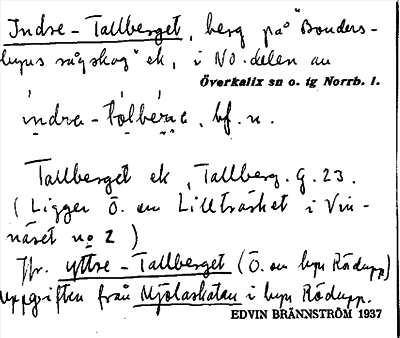 Indre-Tallberget, berg på "Bonders-
byns rågskog" ek, i NO. delen av
Överkalix sn o. tg Norrb. l.
bf. n.
Tallberget ek, Tallberg. G. 23.
(Ligger Ö. om Lillträsket i Vin-
näset no 2)
Jfr. Yttre-Tallberget (Ö. om byn Rödupp)
Uppgiften från i byn Rödupp.
EDVIN BRÄNNSTRÖM 1937